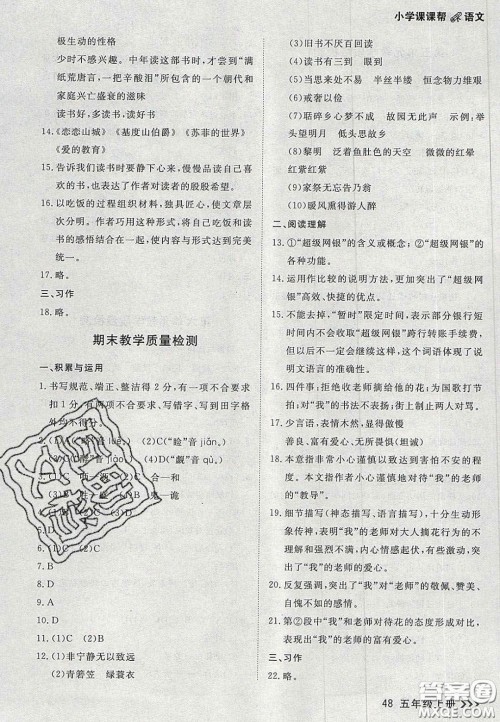 小学课课帮 语文
极生动的性格
少时不感兴趣。中年读这部书时，才领悟了“满
纸荒唐言，一把辛酸泪”所包含的一个朝代和
家庭兴亡盛衰的滋味
读书好，多读书，读好书
14.《恋恋山城》《基度山伯爵》《苏菲的世界》
《爱的教育》
15. 告诉我们读书时要静下心来，慢慢品读自己喜
欢的书，表达了作者对读者的殷殷希望。
16. 以吃饭的过程组织材料，匠心独具，使文章层
次分明。作者巧用这种形式，将自己吃饭和读
书的感悟结合在一起，使内容与形式达到完美
统一。
17. 略。
三、习作
18. 略。
期末教学质量检测
一、积累与运用
1. 书写规范、端正、整洁得2分，有一项不合要求
扣1分，有两项不合要求、写错字、写到田字格
外均不得分。
(2)C(“睑”音jiǎn)。
(2)D(“觑”音qù)。
合—
鬼—诡
5. D
6. (1)C (2)D
7. B
8. D
9. A
10. D
11. (1)C (2)B
12. (1)非宁静无以致远
(2)青箬笠 绿蓑衣
(3)旧书不厌百回读
(4)读书有三到 眼到
(5)当思来处不易 半丝半缕 恒念物力维艰
(6)戒奢以俭
(7)聒碎乡心梦不成 故园无此声 示例：举
头望明月 低头思故乡
(8)黎明 泛着鱼肚色的天空 微微的红晕
红紫红紫
(9)家祭无忘告乃翁
(10)暖风熏得游人醉
二、阅读理解
13. ①“超级网银”的含义或概念；②“超级网银”的
各种功能。
14. 运用作比较的说明方法，更加突出了“超级网银”
高效、快捷的优点。
15. 不能去掉，“暂时”限定时间，表示部分银行短
时间内对“超级网银”跨行转账手续费，但以后
不一定会继续这样，“暂时”一词体现了
说明文语言的准确性。
16. 四件事：拒绝收老师摘给他的花；为国歌打节
拍；对“我”的书法不放心；街上制止两人对骂。
17. 少言语，有事闷在心里，不爱搭讪应酬。
善良、富有爱心、爱憎分明、质朴无伪(坦诚)
18. 本意指非常小心谨慎以达到害怕不安的程
度。本文指作者小心谨慎地对待我的老师对我
的“教导”。
19. 细节描写(神态描写、语言描写)，十分生动形
象传神，表现了“我”的老师对大人摘花行为的
不能容忍，突出了他内心充满爱心。
20. 反复强调，突出了“我”对“我”的老师”的敬佩、赞美
和依恋的感情。
21. 第②段中“我”和其他同事的态度形成了对比，
突出表现出“我”的老师富有爱心。
三、习作
22. 略。
48 五年级上册
答案圈
MXQE.COM